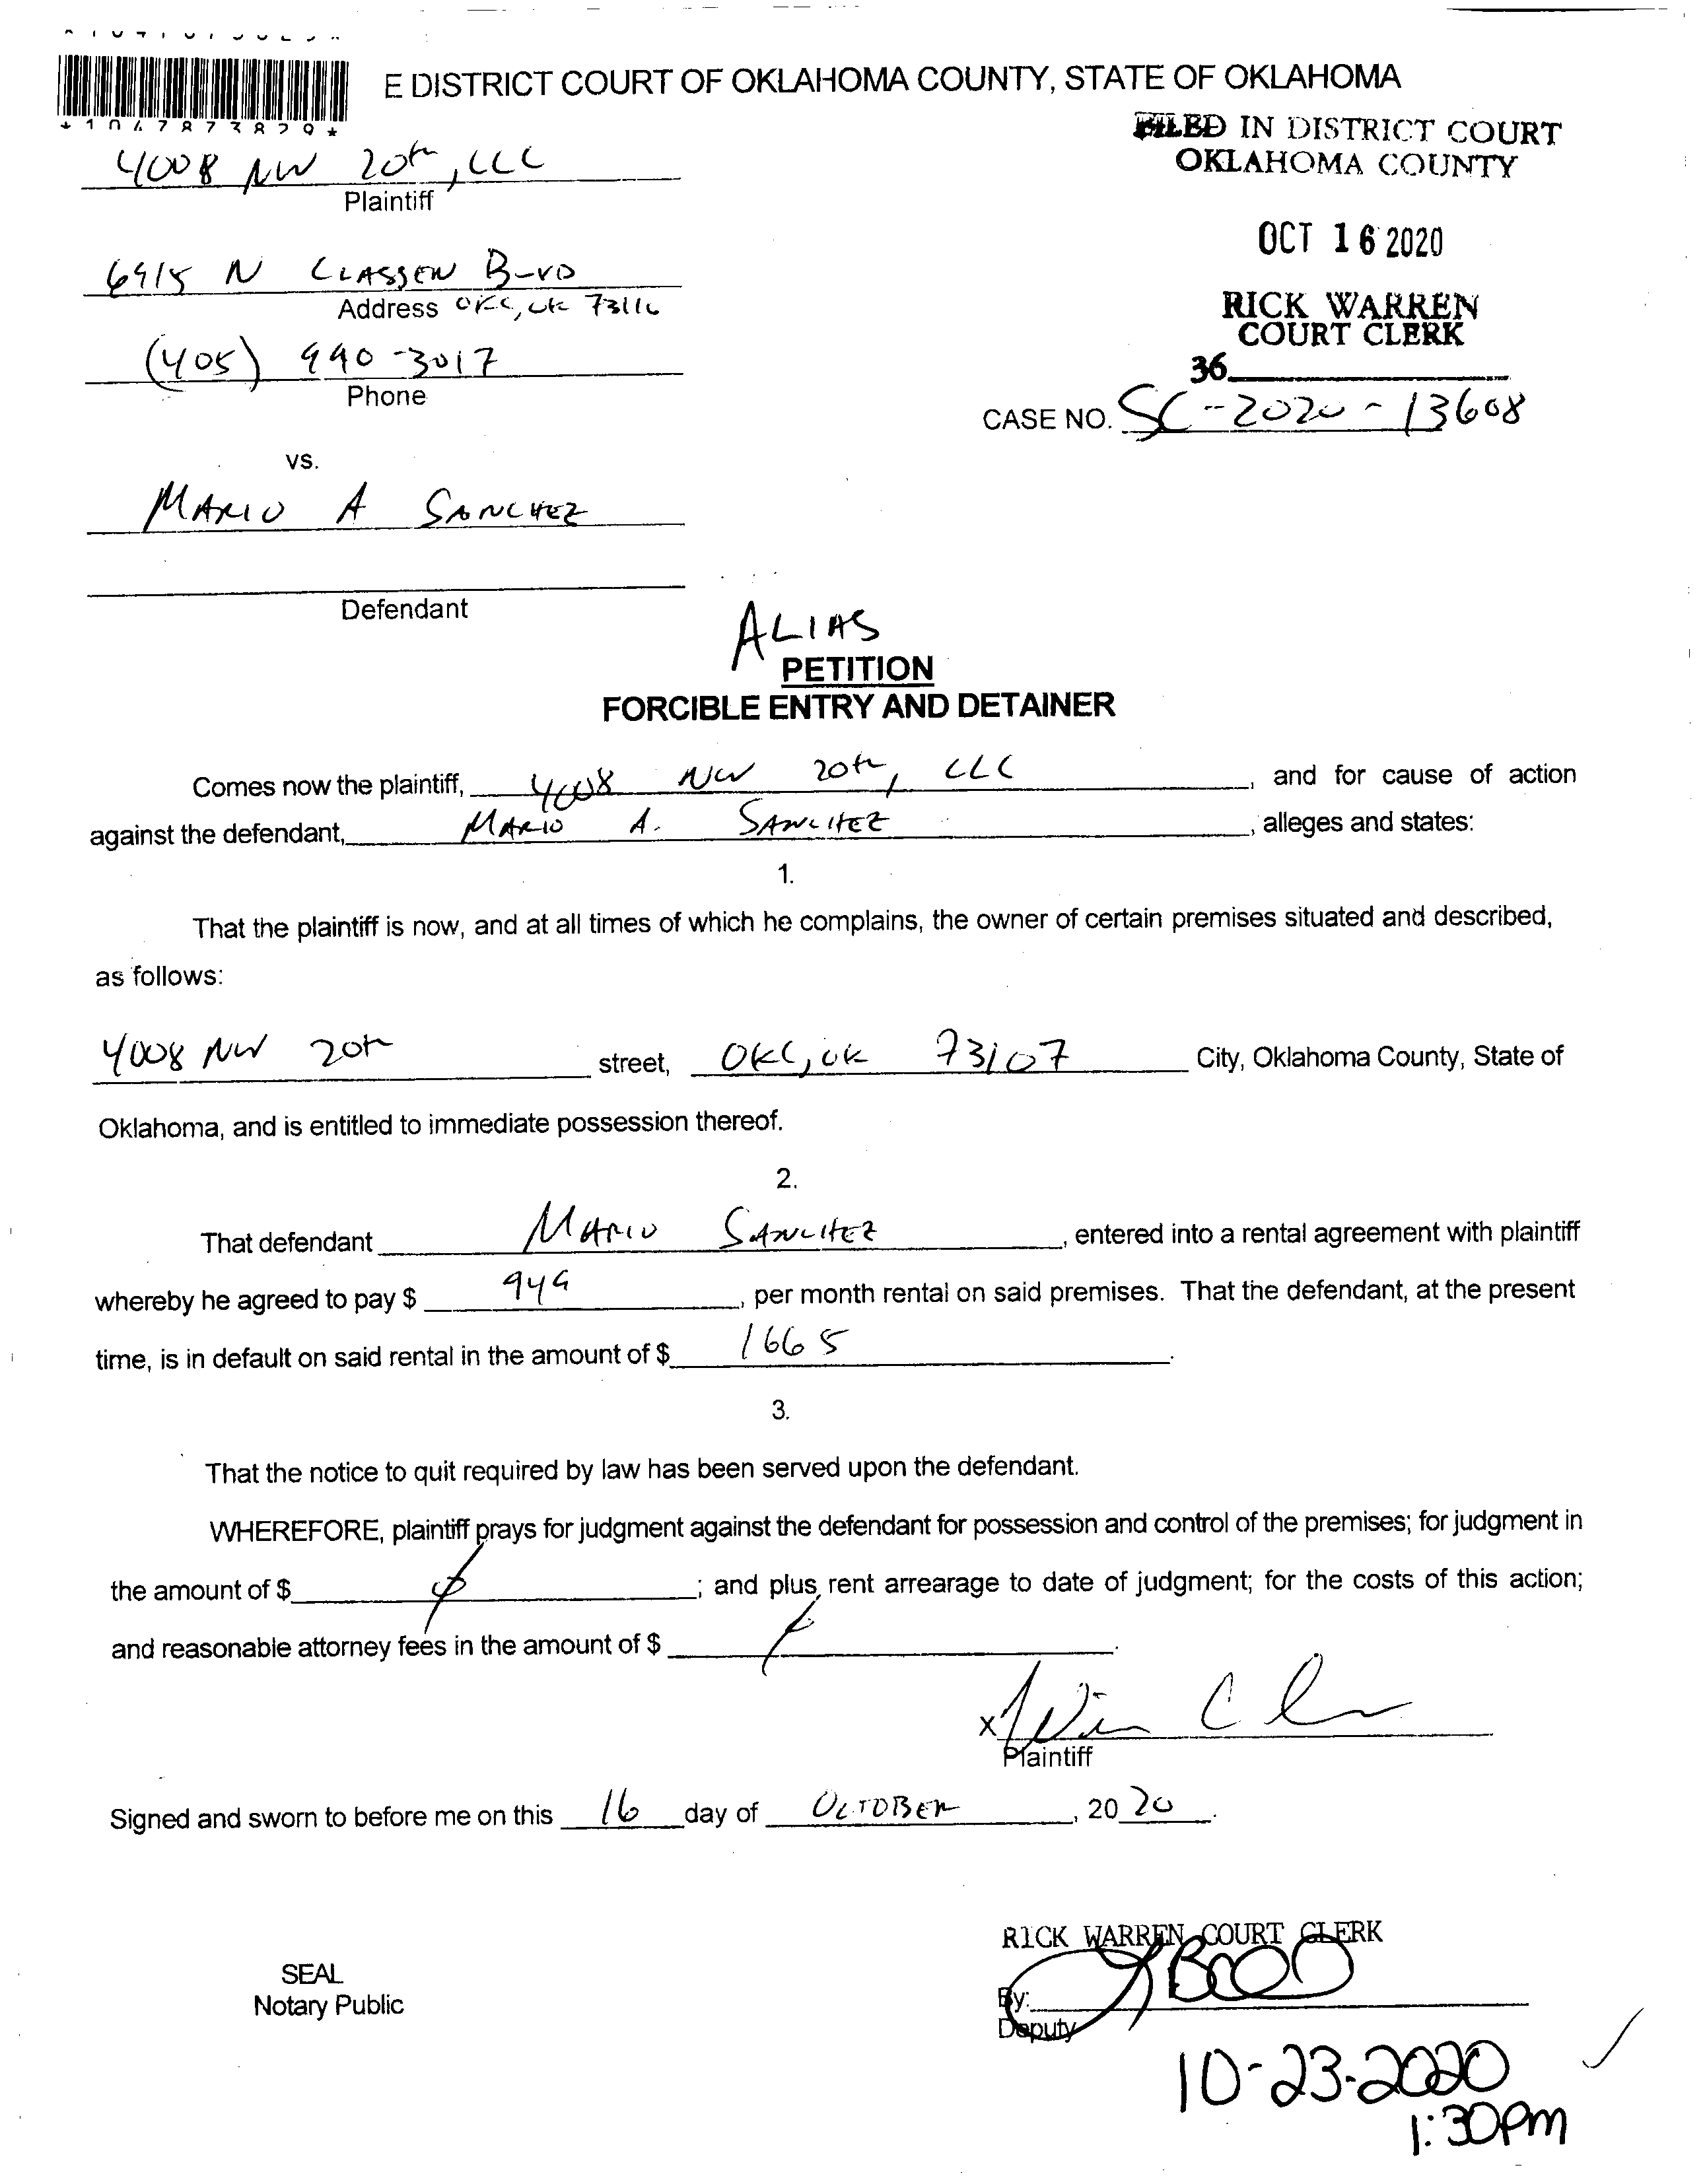 *1047873829*
E DISTRICT COURT OF OKLAHOMA COUNTY, STATE OF OKLAHOMA
FILED IN DISTRICT COURT
OKLAHOMA COUNTY
4008 NW 20th, LLC
Plaintiff
OCT 16 2020
6915 N CLASSEN BLVD
Address OKC, OK 73116
RICK WARREN
COURT CLERK
(405) 990-3017
Phone
36
CASE NO. SC-2020-13608
vs.
MARIO A SANCHEZ
Defendant
ALIAS
PETITION
FORCIBLE ENTRY AND DETAINER
Comes now the plaintiff, 4008 NW 20th, LLC, and for cause of action
against the defendant, MARIO A. SANCHEZ, alleges and states:
1.
That the plaintiff is now, and at all times of which he complains, the owner of certain premises situated and described,
as follows:
4008 NW 20th street, OKC, OK 73107 City, Oklahoma County, State of
Oklahoma, and is entitled to immediate possession thereof.
2.
That defendant MARIO SANCHEZ, entered into a rental agreement with plaintiff
whereby he agreed to pay $ 949, per month rental on said premises. That the defendant, at the present
time, is in default on said rental in the amount of $ 1665.
3.
That the notice to quit required by law has been served upon the defendant.
WHEREFORE, plaintiff prays for judgment against the defendant for possession and control of the premises; for judgment in
the amount of $ ; and plus, rent arrearage to date of judgment; for the costs of this action;
and reasonable attorney fees in the amount of $ .
x
Plaintiff
Signed and sworn to before me on this 16 day of OCTOBER, 20 20.
RICK WARREN COURT CLERK
SEAL
Notary Public
By:
Deputy
10-23-2020
1:30pm